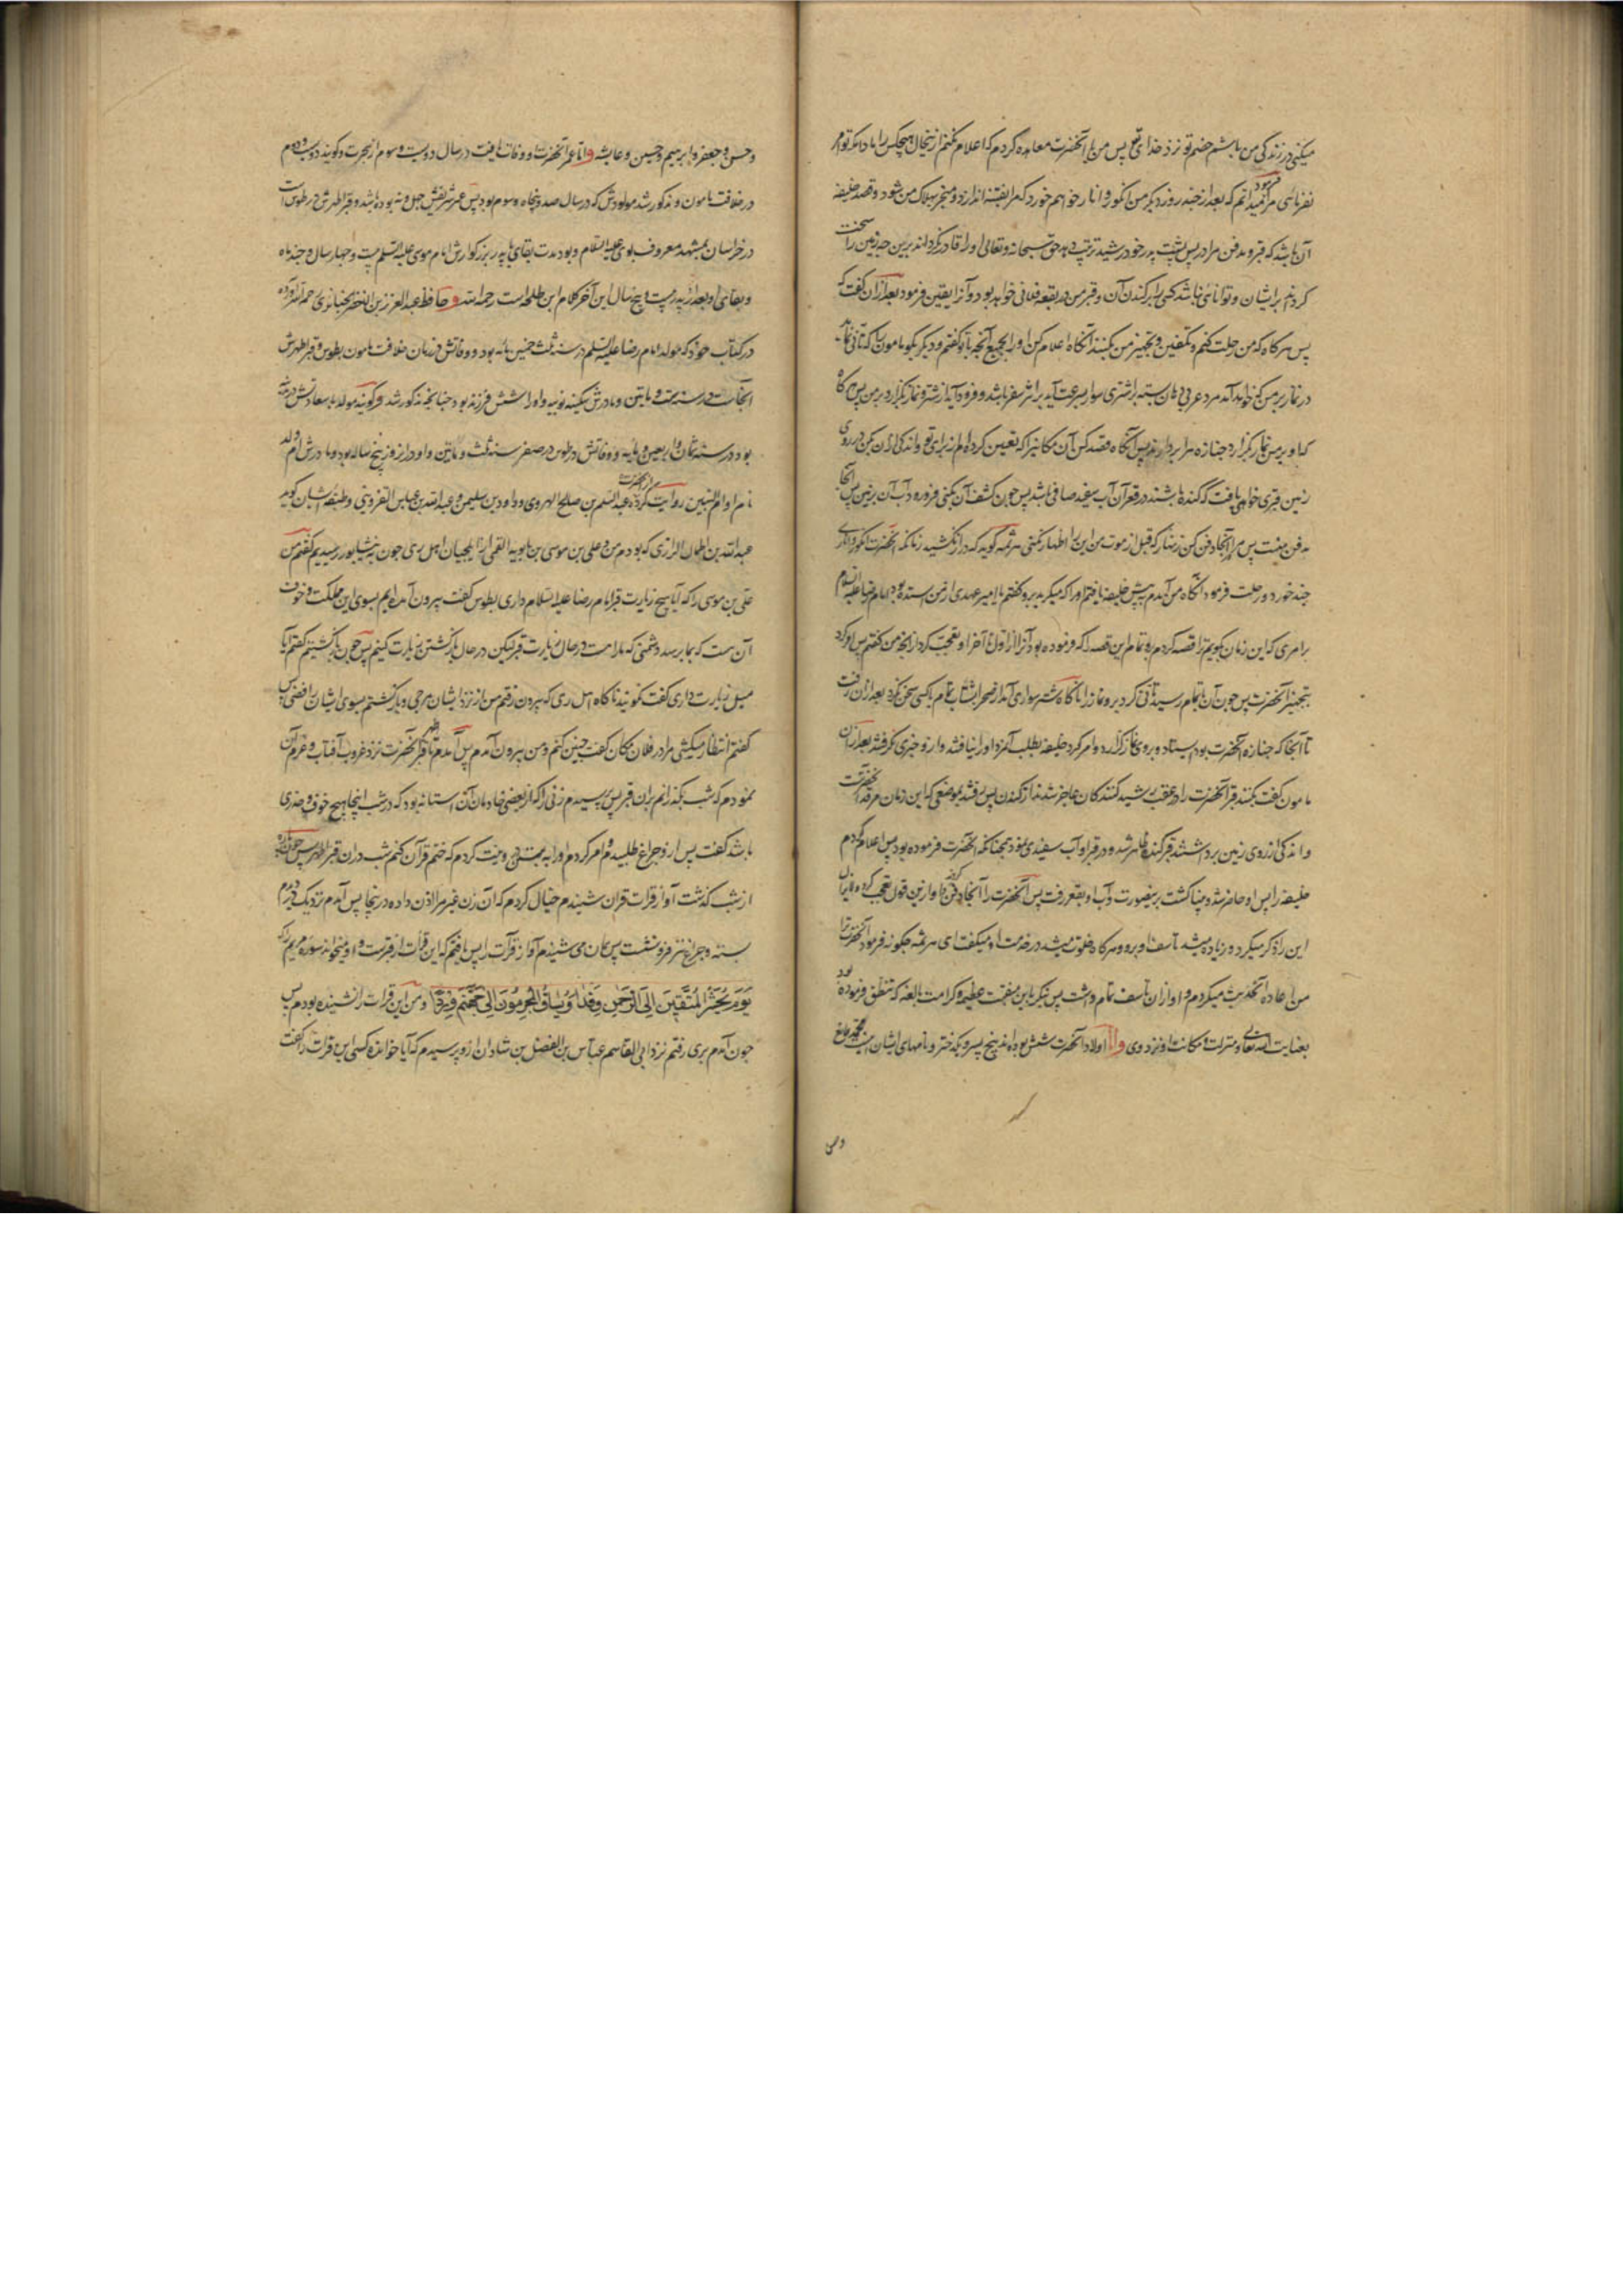 میکنی در زندگی من باشم خصم تو نزد خدای تع پس من با آنحضرت معاهده کردم که اعلام نکنم ازینحال هیچکس را مادام که تو امر
نفرمائی فرمود میدانم که بعد از چند روز دیگر من انگور و انار خواهم خورد که مرا بفتنه اندازد و منجر بهلاک من شود و قصد خلیفه
آن باشد که قبر و مدفن مرا در پس پشت پدر خود رشید ترتیب دهد حق سبحانه و تعالی او را قادر نگرداند برین چه زمین را سخت
کردانم بر ایشان و توانائی نباشد کسی را بر کندن آن و قبر من در بقعه فلانی خواهد بود و آنرا یقین فرمود بعد از آن گفت که
پس هر گاه که من رحلت کنم و تکفین و تجهیز من بکنند آنگاه اعلام کن او را بجمیع آنچه با تو گفتم و دیگر بگو مامون را که تانی نماید
در نماز بر من که خواهد آمد مرد عربی دهان بسته بر اشتری سوار بسرعت آید بر اثر سفر باشد و فرود آید از شتر و نماز بگزارد بر من پس هر گاه
که او بر من نماز بگزارد جنازه مرا بردارند پس آنگاه قصد کن آن مکانیرا که تعیین کرده‌ام از برای تو و اندکی از آن بکن در روی
زمین قبری خواهی یافت که کنده باشند در قعر آن آب سفید صافی باشد پس چون کشف آن بکنی فرو رود آب آن بزمین پس آنجا
مدفن منست پس مرا آنجا دفن کن زنهار که قبل از موت من این را اظهار نکنی هرثمه گوید که دراز نکشید زمانی که آنحضرت انگور و اناری
چند خورد و رحلت فرمود آنگاه من آمدم پیش خلیفه یافتم او را که میگرید برو گفتم یا امیر عهدی از من استده بود امام رضا علیه السلام
بر امری که این زمان بگویم ترا قصه کردم برو تمام این قصه را که فرموده بود آنرا از اول تا آخر او تعجب کرد از آنچه من گفتم پس امر کرد
بتجهیز آنحضرت پس چون آن باتمام رسید تانی کرد برو نماز را ناگاه شتر سواری آمد از صحرا بشتاب تمام با کسی سخن نکرد بعد از آن رفت
تا آنجا که جنازه آنحضرت بود ایستاد و بر وی نماز گزارد و امر کرد خلیفه بطلب آنمرد او را نیافتند و از و خبری نگرفتند بعد از آن
مامون گفت بکنند قبر آنحضرت را در عقب رشید کنندکان عاجز شدند از کندن پس رفتند بموضعی که این زمان مرقد آنحضرتست
و اندکی از روی زمین برداشتند قبر کنده ظاهر شد و در قبر او آب سفیدی بود همچنانکه آنحضرت فرموده بود پس اعلام کردم
خلیفه را پس او حاضر شد و بینا گشت برینصورت و آب او بقعر رفت پس آنحضرت را آنجا دفن کردند و او ازین قول تعجب کرده
این را ذکر میکرد و زیاده میشد تاسف او برو و هر گاه خلوت میشد در خدمت او میگفت ای هرثمه چگونه فرمود آنحضرت ترا
من اعاده آنحدیث میکردم و او از آن تاسف تمام داشت پس بنگر باین منقبت عظیمه و کرامت بالغه که تنطق فرموده بود
بعنایت الله تعالی و منزلت و مکانت او نزد وی و اما اولاد آنحضرت شش بوده‌اند پنج پسر و یک دختر و نامهای ایشان اینست محمد قانع
و حسن
و حسن و جعفر و ابرهیم و حسین و عایشه و اما عمر آنحضرت او وفات یافت در سال دویست و سوم از هجرت و گویند دویست و دوم
در خلافت مامون و مذکور شد مولودش که در سال صد و پنجاه و سوم بود پس عمر شریفش چهل و نه بوده باشد و قبر اطهرش در طوس است
در خراسان بمشهد معروف بوی علیه السلام و بود مدت بقای با پدر بزرگوارش امام موسی علیه السلم بیست و چهار سال و چند ماه
و بقای او بعد از پدر بیست و پنج سال این آخر کلام ابن طلحه است رحمه الله و حافظ عبد العزیز بن الاخضر الجنابذی رحمه الله آورده
در کتاب خود که مولد امام رضا علیه السلم در سنه ثلث خمسین مائه بود و وفاتش در زمان خلافت مامون بطوس و قبر اطهرش
آنجاست در سنه ست و مایتین و مادرش سکینه نوبیه و او را شش فرزند بود چنانچه مذکور شد و گویند مولد با سعادتش در مدینه
بود در سنه ثمان و اربعین و مایه و وفاتش در طوس در صفر سنه ثلث و مایتین و او در آنروز پنج ساله بود و مادرش ام ولد
نام او ام البنین روایت کرده از آنحضرت عبد السلم بن صالح الهروی و داود بن سلیمن و عبد الله بن عباس القزوینی و طبقه ایشان گوید
عبد الله بن الرازی که بودم من و علی بن موسی بن بابویه القمی از ایلچیان اهل ری چون به نیشابور رسیدیم گفتم من
علی بن موسی را که آیا هیچ زیارت قبر امام رضا علیه السلام داری بطوس گفت بیرون آمده‌ایم بسوی این مملکت و خوف
آن هست که بما برسد دشمنی که ماراست در حال زیارت قبر لیکن در حال بازگشتن زیارت کنیم پس چون بازگشتیم گفتم آیا
میل زیارت داری گفت نگویند ناگاه اهل ری که بیرون رفتم من از نزد ایشان مرجی و بازگشتم بسوی ایشان رافضی پس
گفتم انتظار میکشی مرا در فلان مکان گفت چنین کنم و من بیرون آمدم پس آمدم تا قبر آنحضرت نزد غروب آفتاب و عزم آن
نمودم که شب بگذرانم بران قبر پس پرسیدم زنی را که از بعضی خادمان آن استانه بود که در شب اینجا هیچ خوف و حذری
باشد گفت پس ازو چراغ طلبیدم و امر کردم او را به بستن در و نیت کردم که ختم قرآن کنم شب دران قبر اطهر پس چون پاره
از شب گذشت آواز قرات قران شنیدم خیال کردم که آن زن غیر مرا اذن داده درینجا پس آمدم نزدیک در دیدم
بسته و چراغ نیز فرو نشست پس همان می شنیدم آواز قرآت را پس یافتم که این قرات از قبرست و او میخواند سوره مریم را که
يَوْمَ يُحْشَرُ الْمُتَّقِينَ اِلَى الرَّحْمٰنِ وَفْدًا وَيُسَاقُ الْمُجْرِمُونَ اِلَى جَهَنَّمَ وِرْدًا و من این قرات را نشنیده بودم پس
چون آمدم بری رفتم نزد ابی القاسم عباس بن الفضل بن شاذان ازو پرسیدم که آیا خوانده کسی این قرات را گفت